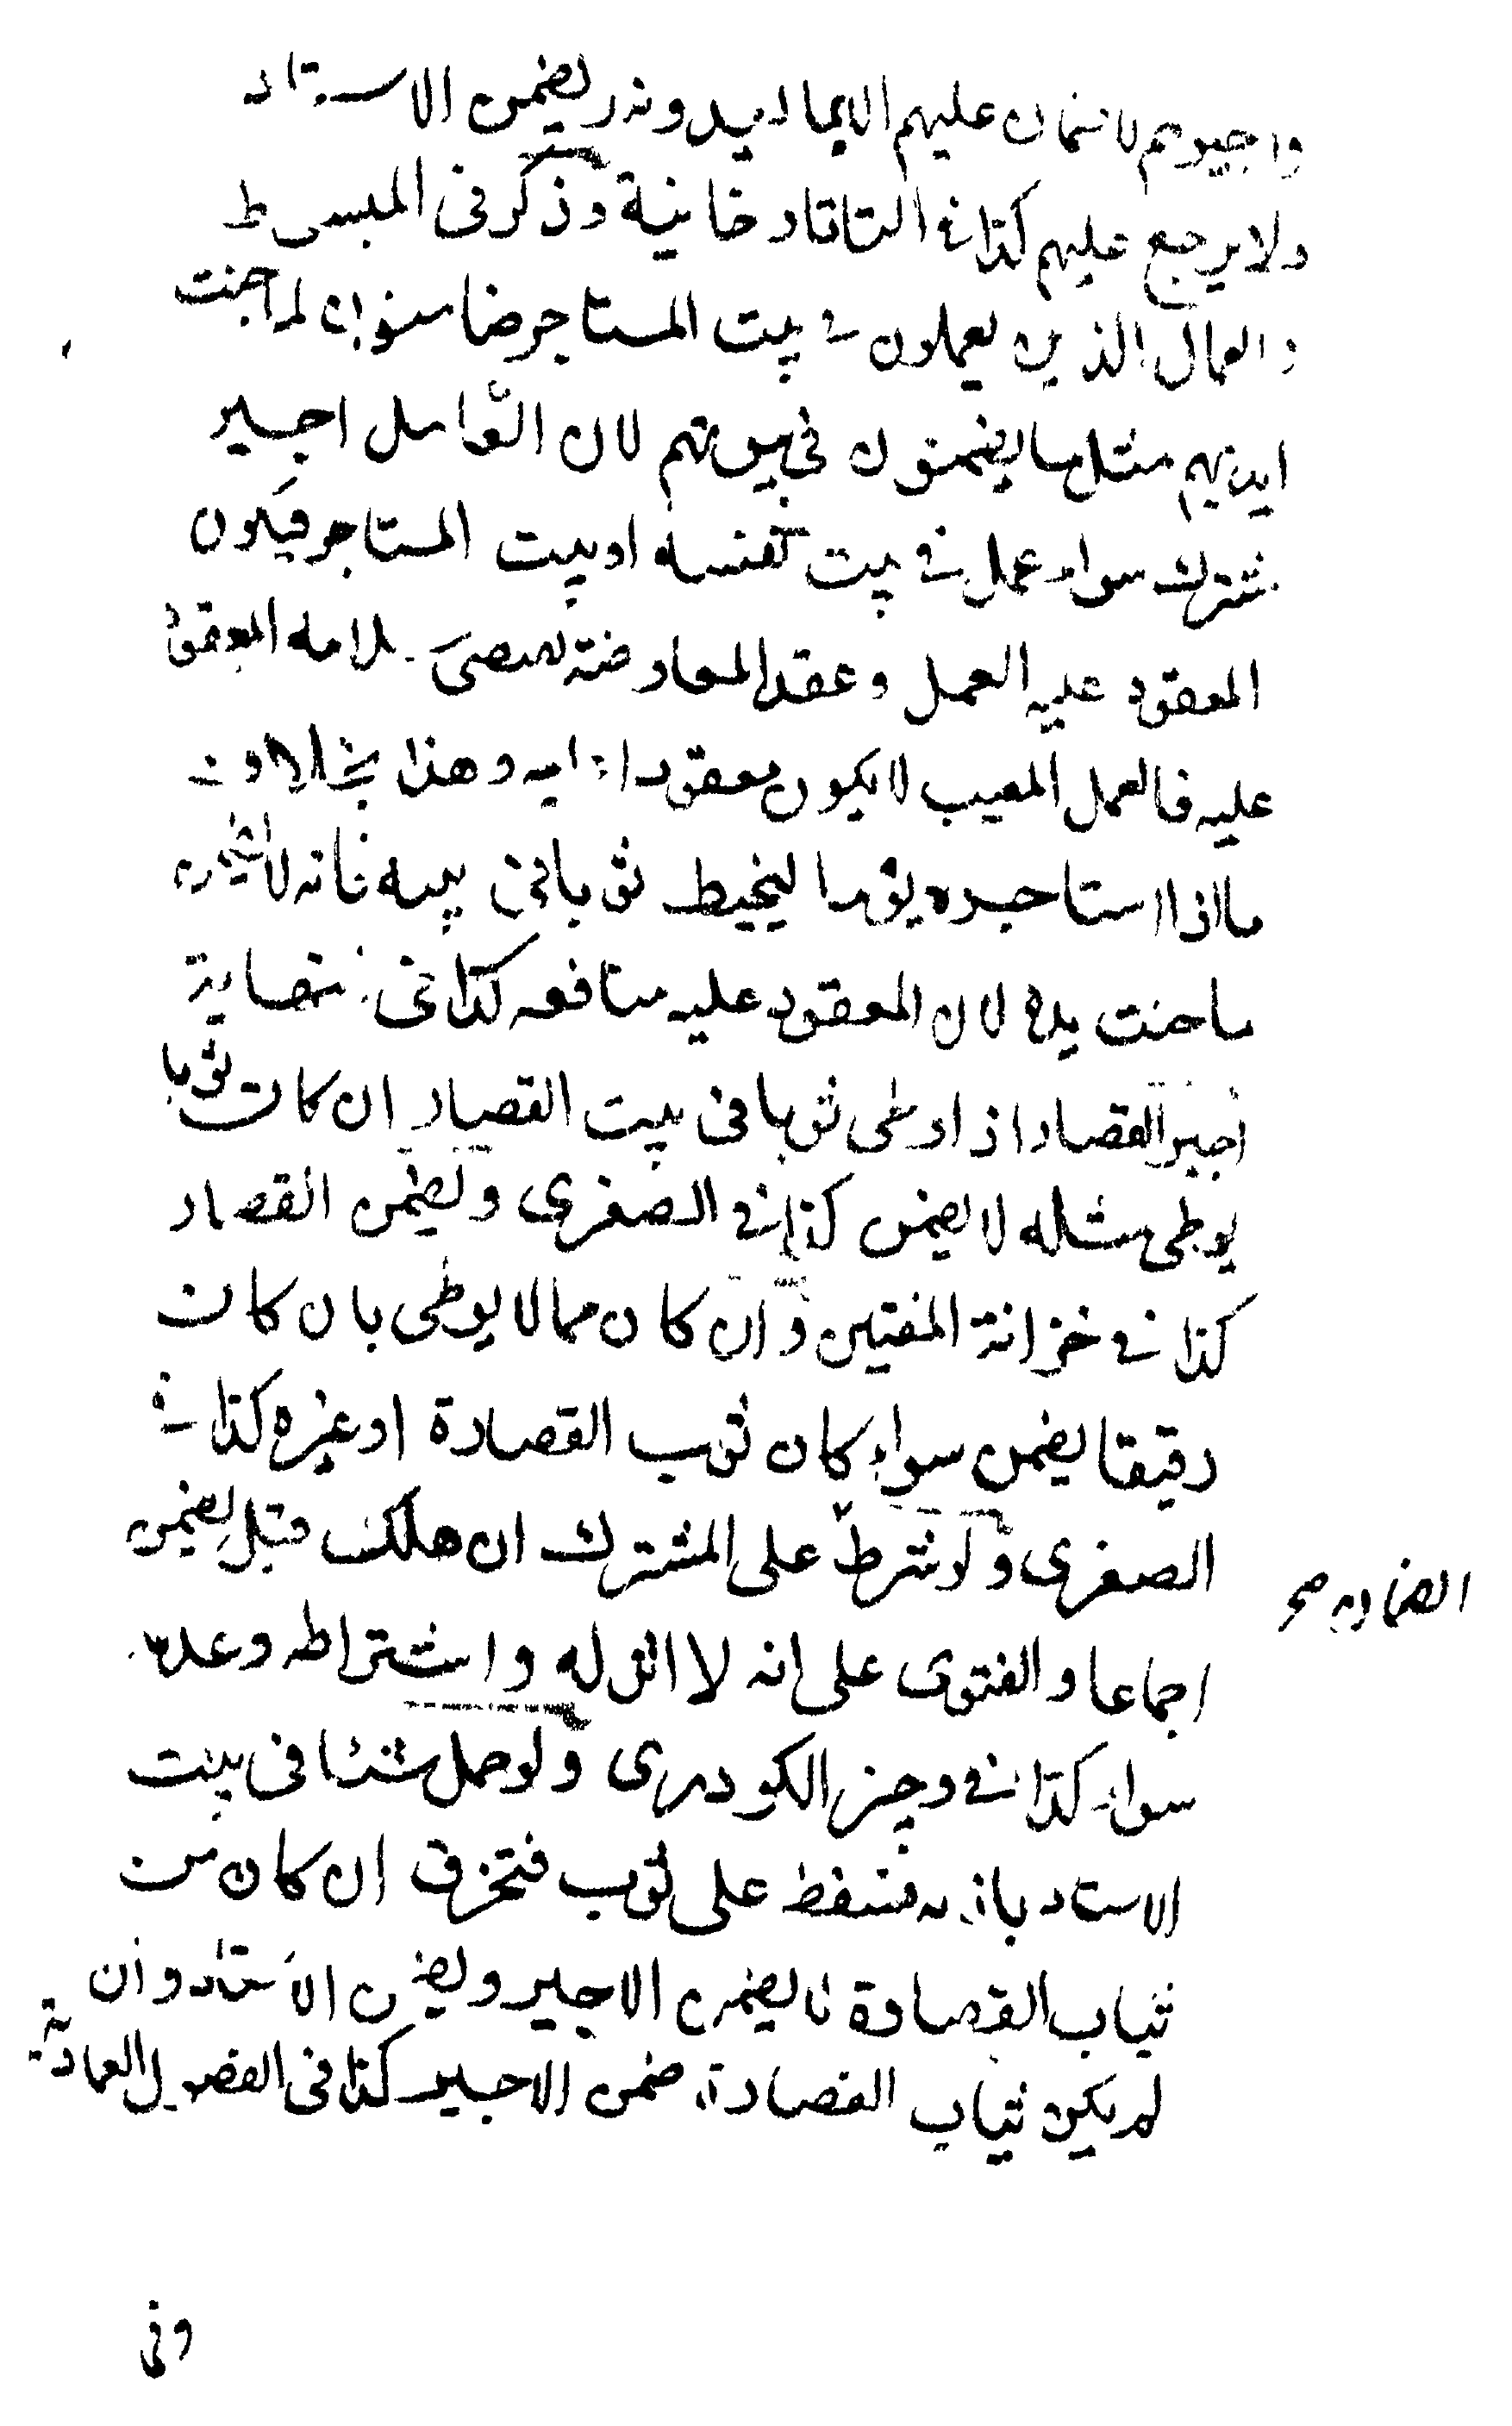 واجيرهم لا ضمان عليهم الا بما يضمن الاستاد
ولا يرجع عليهم كذا في التاتارخانية وذكر في المبسوط
والعمال الذين يعملون في بيت المستاجر ضامنون لما جنت
ايديهم مثل ما يضمنون في بيوتهم لان العامل اجير
مشترك سواء عمل في بيت نفسه او بيت المستاجر فيكون
المعقود عليه العمل وعقد المعاوضة
عليه فالعمل المعيب لا يكون معقودا عليه وهذا بخلاف
ما اذا استاجره يوما ليخيط ثوبا في بيته فانه لا يضمن
ما جنت يده لان المعقود عليه منافعه كذا في
اجير القصار اذا وطى ثوبا في بيت القصار ان كان ثوبا
يوطى مثله لا يضمن كذا في الصغرى ويضمن القصار
كذا في خزانة المفتين وان كان مما لا يوطى بان كان
رقيقا يضمن سواء كان ثوب القصارة او غيره كذا في
الصغرى ولو شرط على المشترك ان هلك قبل يضمن
اجماعا والفتوى على انه لا اثر له واشتراطه وعدمه
سواء كذا في وجيز الكردرى ولو حمل شئا في بيت
الاستاد باذنه فسقط على ثوب فتخرق ان كان من
ثياب القصارة لا يضمن الاجير ويضمن الاستاد وان
لم يكن ثياب القصارة ضمن الاجير كذا في الفصول العمادية
وفي